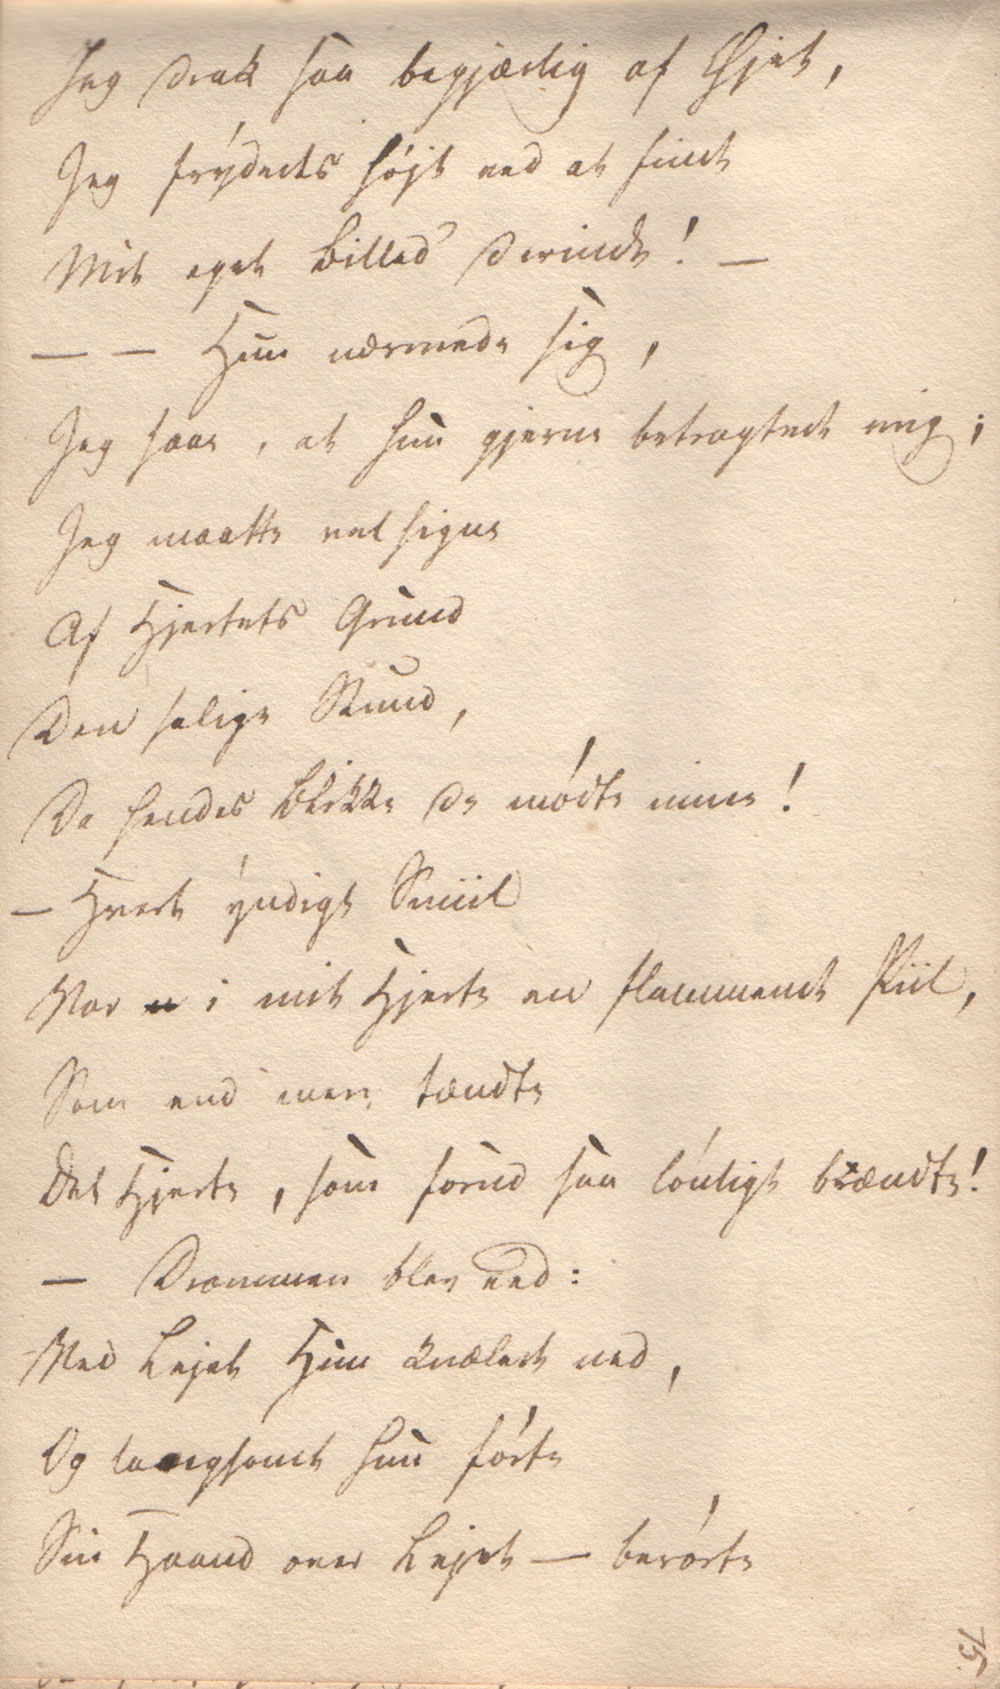 Jeg drak saa begjærlig af Øjet,
Jeg frydedes højt ved at finde
Mit eget Billed' derinde! —
— — Hun nærmede sig,
Jeg saae, at hun gjerne betragtede mig;
Jeg maatte velsigne
Af Hjertets Grund
Den salige Stund,
Da hendes Blikke de mødte mine!
— Hvert yndigt Smiil
Var i mit Hjerte en flammende Piil,
Som end mere tændte
Det Hjerte, som forud saa lønligt brændte!
— Drømmen blev ved:
Ved Lejet Hun knælede ned,
Og langsomt hun førte
Sin Haand over Lejet — berørte
75.